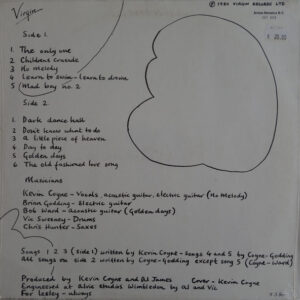 Virgin
© 1980 VIRGIN RECORDS LTD
Side 1.
1 The only one
2 Childrens crusade
3 No melody
4 Learn to swim - Learn to drown
5 Mad boy no. 2
Side 2.
1 Dark dance hall
2 Don't know what to do
3 A little piece of heaven
4 Day to day
5 Golden days
6 The old fashioned love song
Musicians
Kevin Coyne - Vocals, acoustic guitar, electric guitar (No Melody)
Brian Godding - Electric guitar
Bob Ward - Acoustic guitar (Golden days)
Vic Sweeney - Drums
Chris Hunter - Saxes
Songs 1 2 3 (side 1) written by Kevin Coyne - Songs 4 and 5 by Coyne - Godding
All songs on side 2 written by Coyne - Godding except song 5 (Coyne - Ward)
Produced by Kevin Coyne and Al James Cover - Kevin Coyne
Engineered at Alvic studios Wimbledon by Al and Vic
For Lesley - always